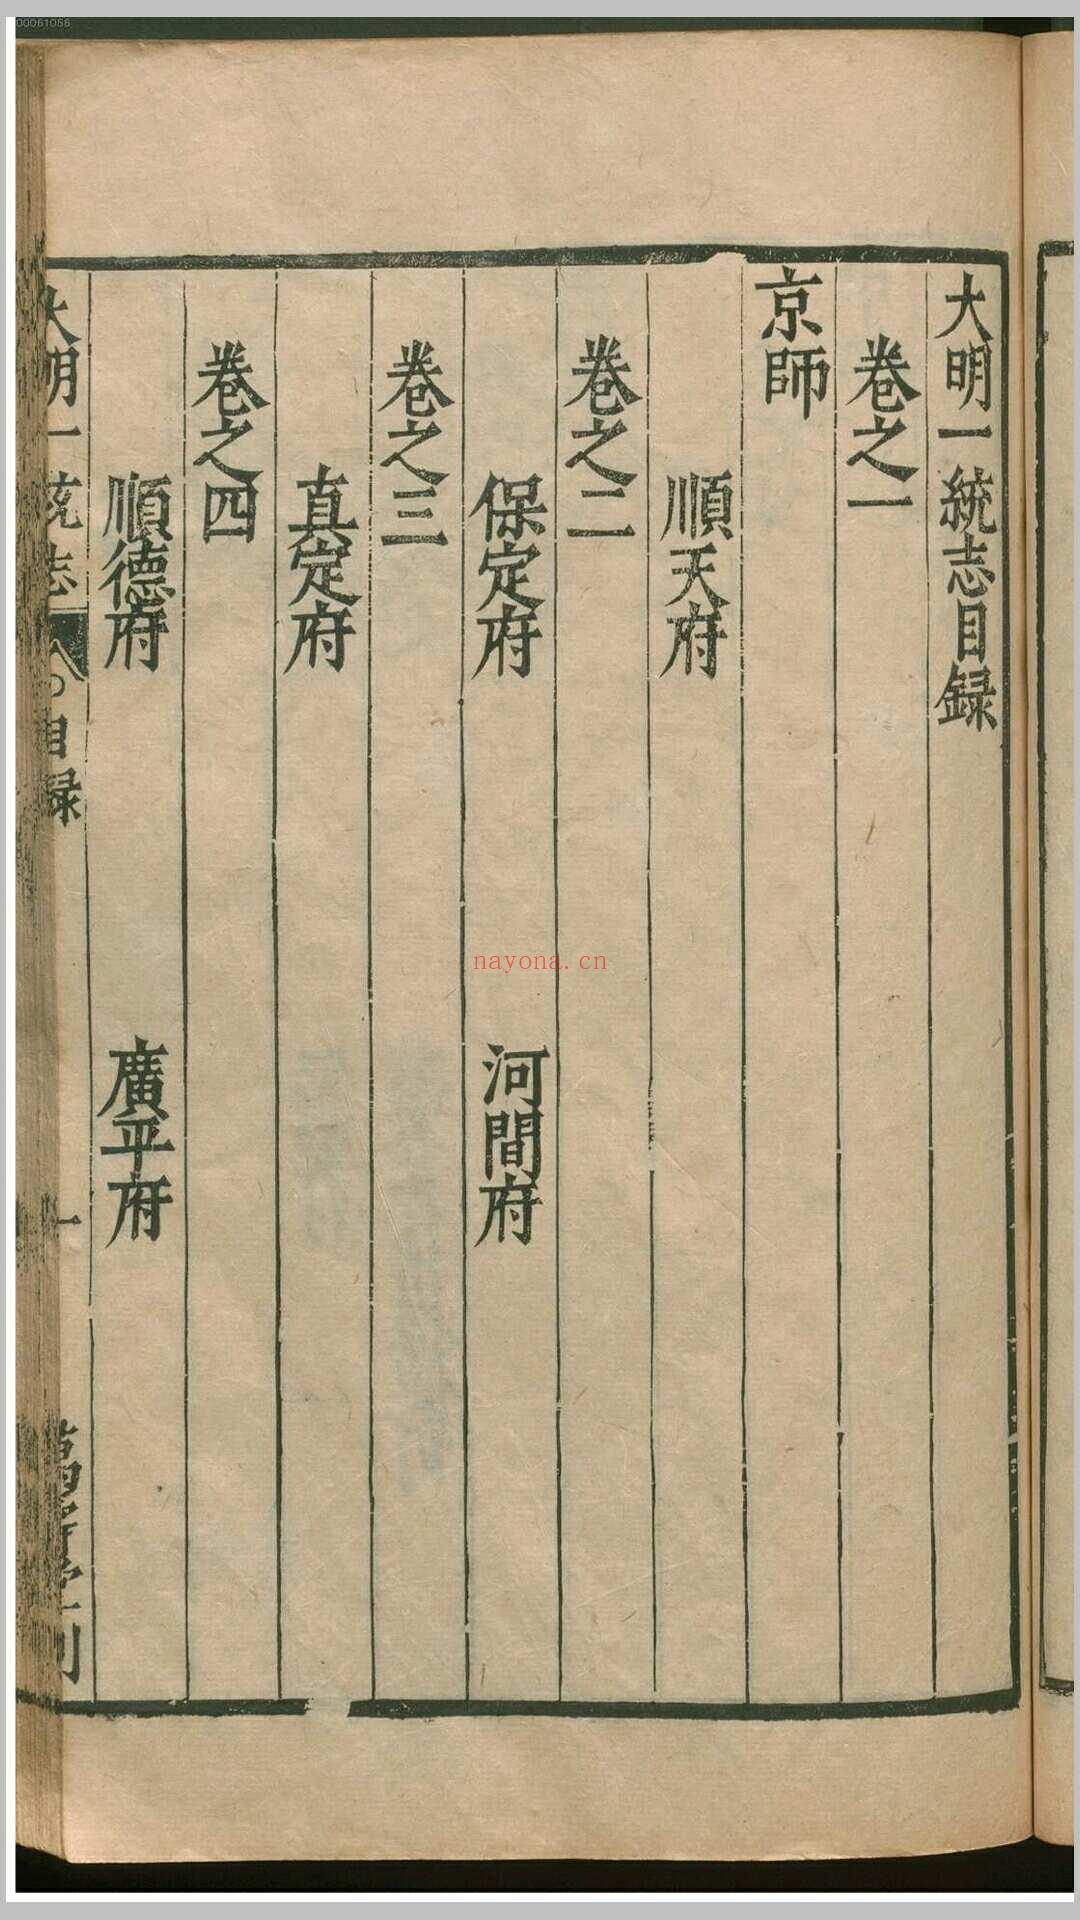 00061056
大明一統志目録
卷之一
京師
順天府
卷之二
保定府 河間府
卷之三
真定府
卷之四
順德府 廣平府
大明一統志 目録 一
nayona.cn